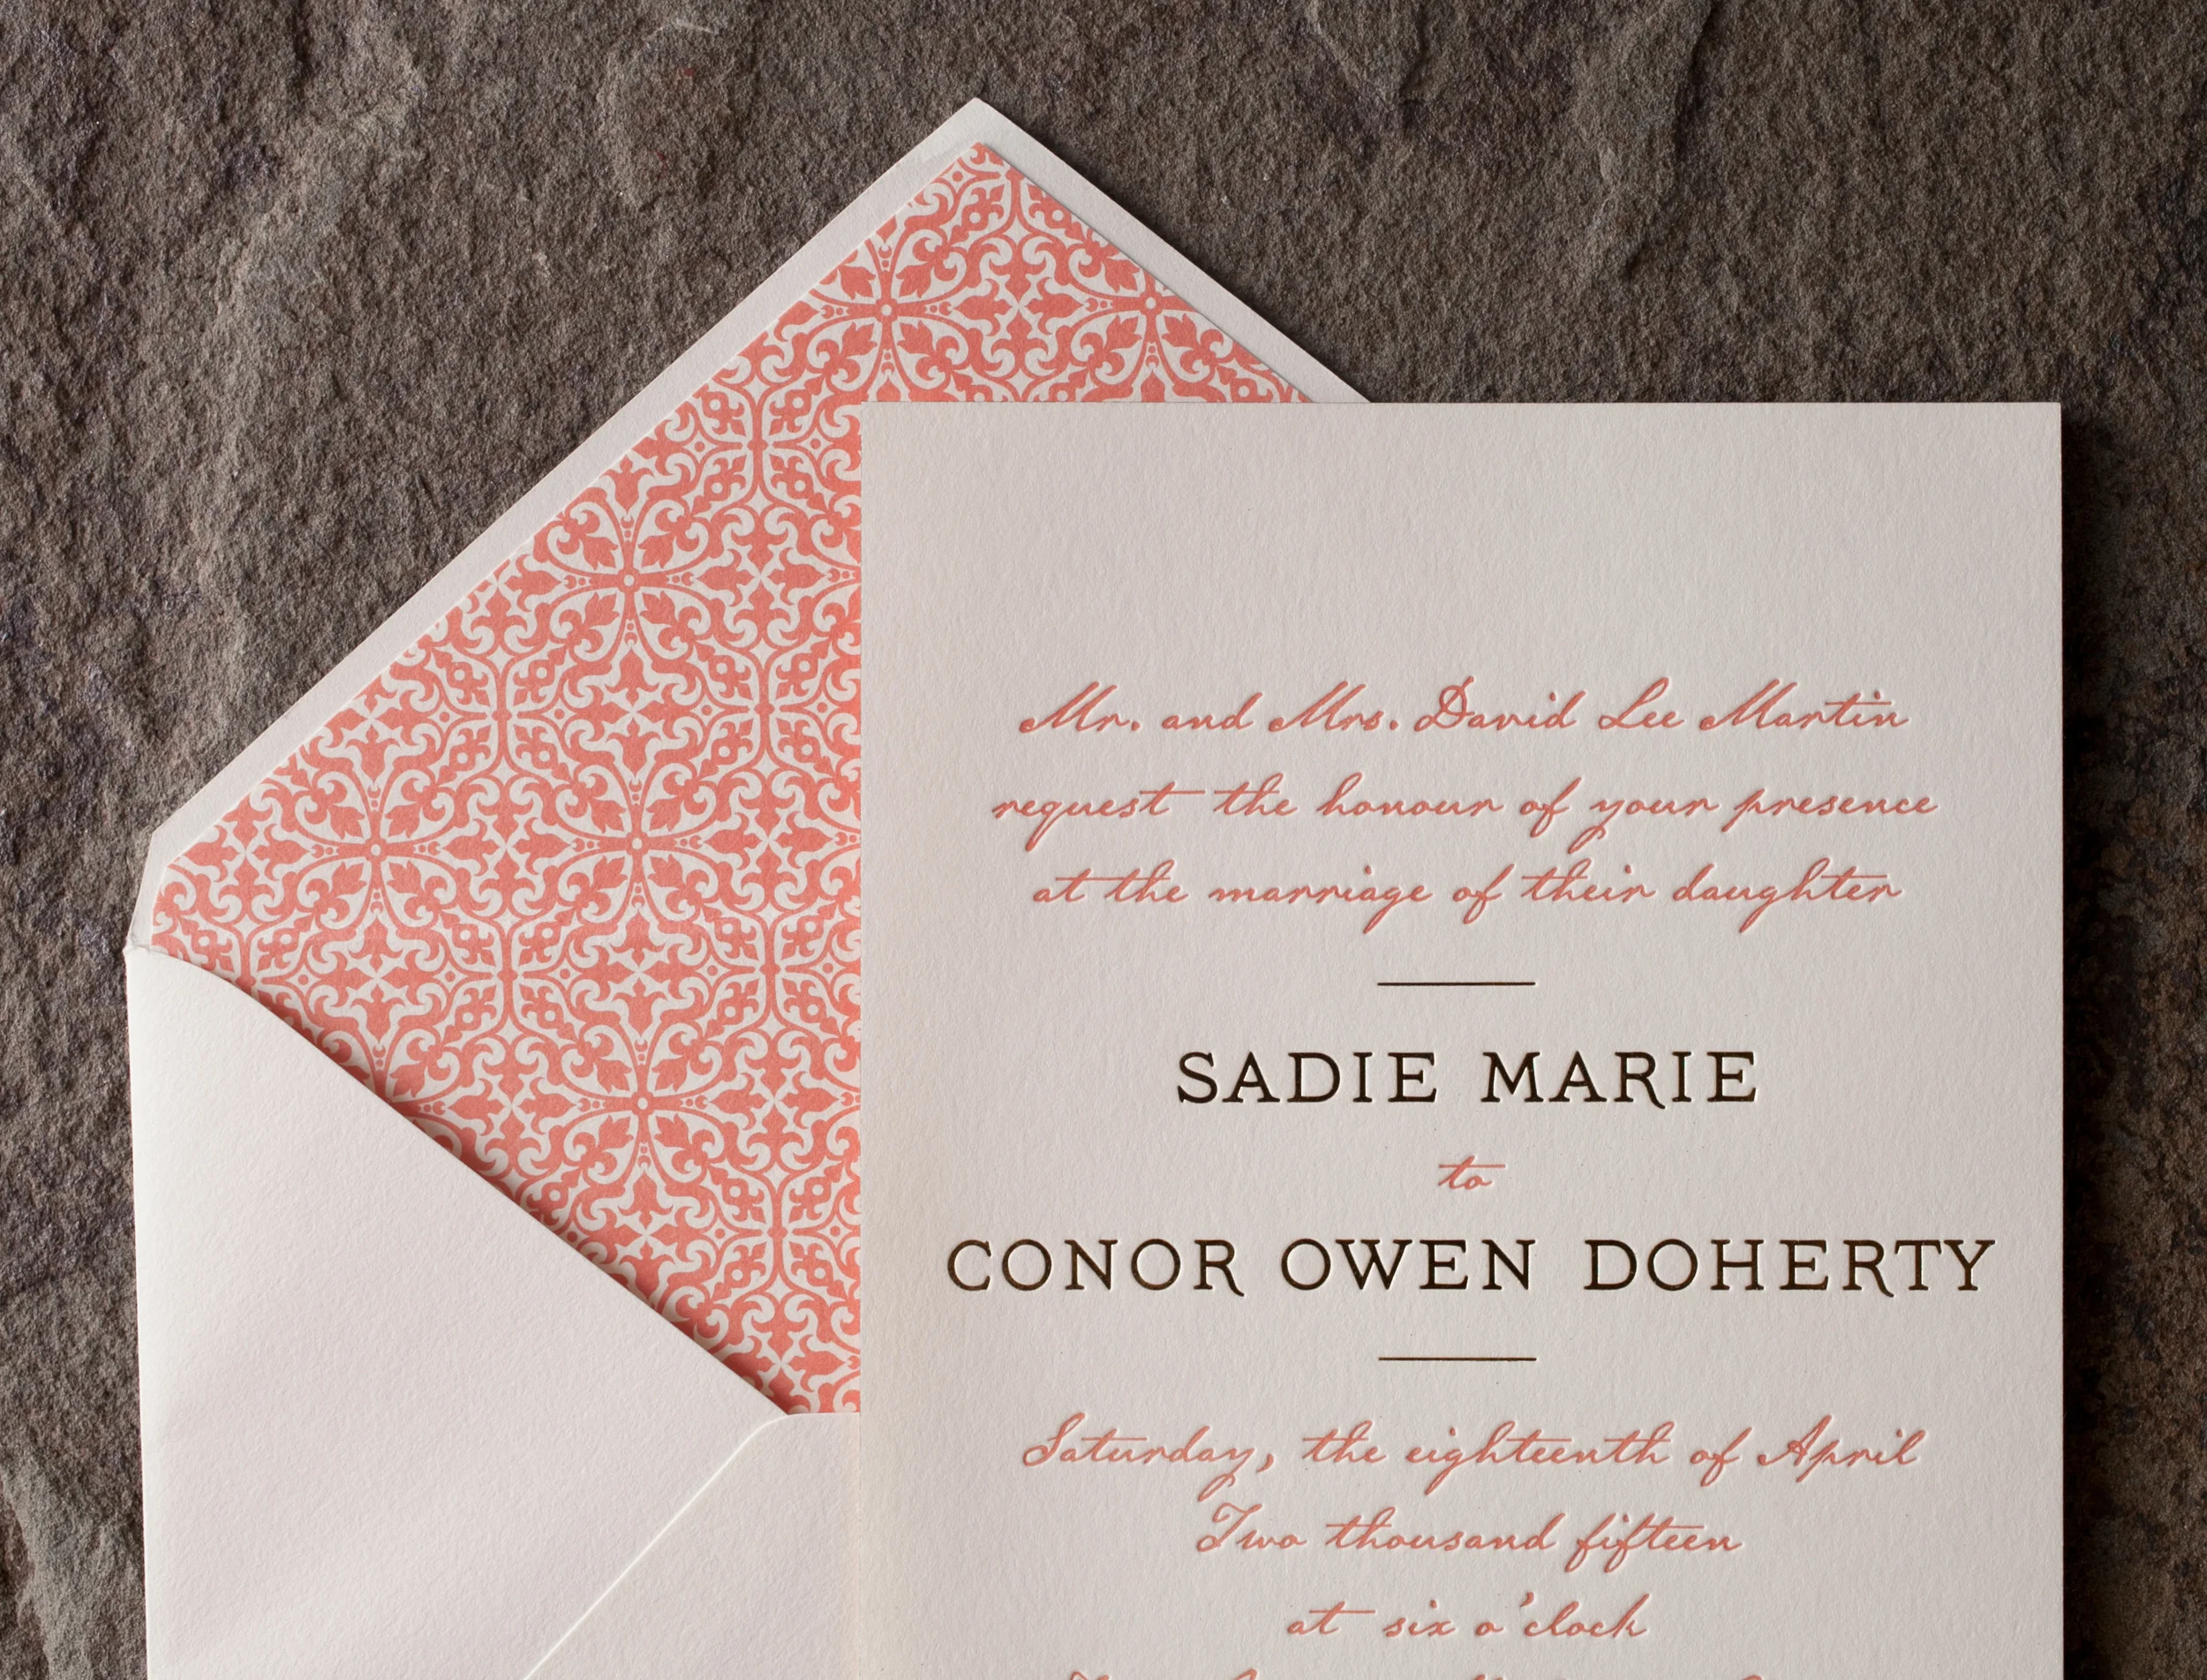 Mr. and Mrs. David Lee Martin
request the honour of your presence
at the marriage of their daughter
SADIE MARIE
to
CONOR OWEN DOHERTY
Saturday, the eighteenth of April
Two thousand fifteen
at six o'clock